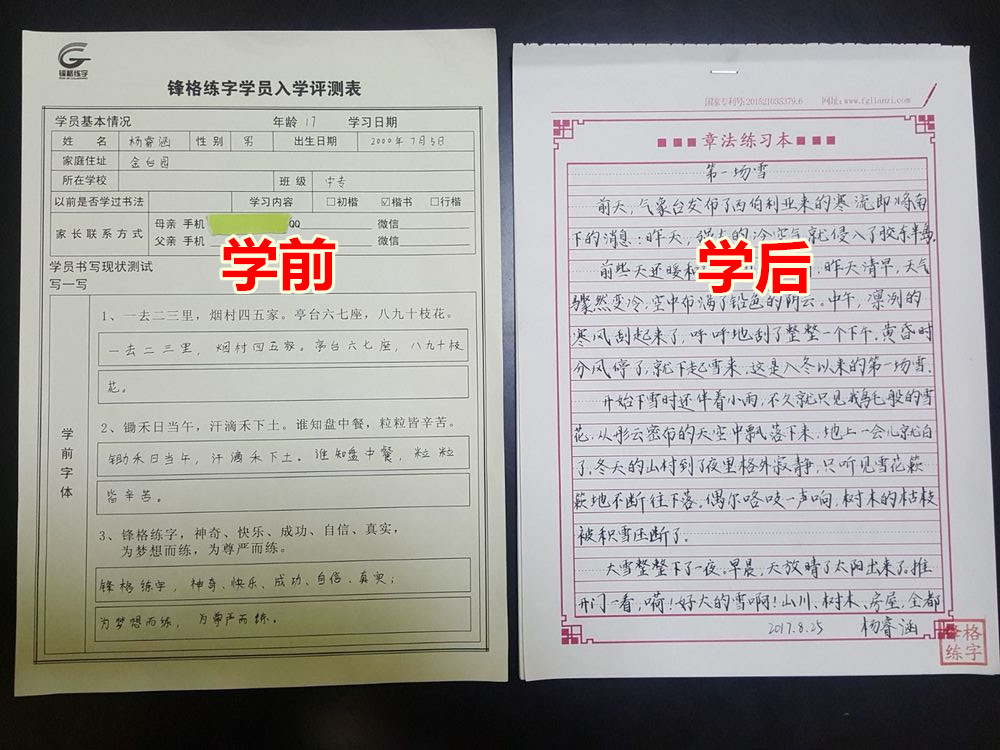 锋格练字
锋格练字学员入学评测表
学员基本情况 年龄 17 学习日期
姓 名 杨睿涵 性 别 男 出生日期 2000年7月5日
家庭住址 金台园
所在学校 班 级 中专
以前是否学过书法 学习内容 □初楷 ☑楷书 □行楷
家长联系方式 母亲 手机 QQ 微信
父亲 手机 微信
学员书写现状测试
写一写
学前字体
1、一去二三里，烟村四五家。亭台六七座，八九十枝花。
一去二三里，烟村四五家。亭台六七座，八九十枝
花。
2、锄禾日当午，汗滴禾下土。谁知盘中餐，粒粒皆辛苦。
锄禾日当午，汗滴禾下土。谁知盘中餐，粒粒
皆辛苦。
3、锋格练字，神奇、快乐、成功、自信、真实，
为梦想而练，为尊严而练。
锋格练字，神奇、快乐、成功、自信、真实；
为梦想而练，为尊严而练。
学前
国家专利号:201521035379.6 网址:www.fglianzi.com
章法练习本
第一场雪
前天，气象台发布了西伯利亚来的寒流即将南
下的消息：昨天，强大的冷空气就侵入了胶东半岛。
前些天还暖和 昨天清早，天气
骤然变冷，空中布满了铅色的阴云。中午，凛冽的
寒风刮起来了，呼呼地刮了整整一个下午。黄昏时
分风停了，就下起雪来，这是入冬以来的第一场雪。
开始下雪时还伴着小雨，不久就只见鹅毛般的雪
花，从彤云密布的天空中飘落下来，地上一会儿就白
了，冬天的山村到了夜里格外寂静，只听见雪花簌
簌地不断往下落，偶尔咯吱一声响，树木的枯枝
被积雪压断了。
大雪整整下了一夜。早晨，天放晴了太阳出来了。推
开门一看，嗬！好大的雪啊！山川、树木、房屋，全都
2017.8.25 杨睿涵
学后
锋格
练字